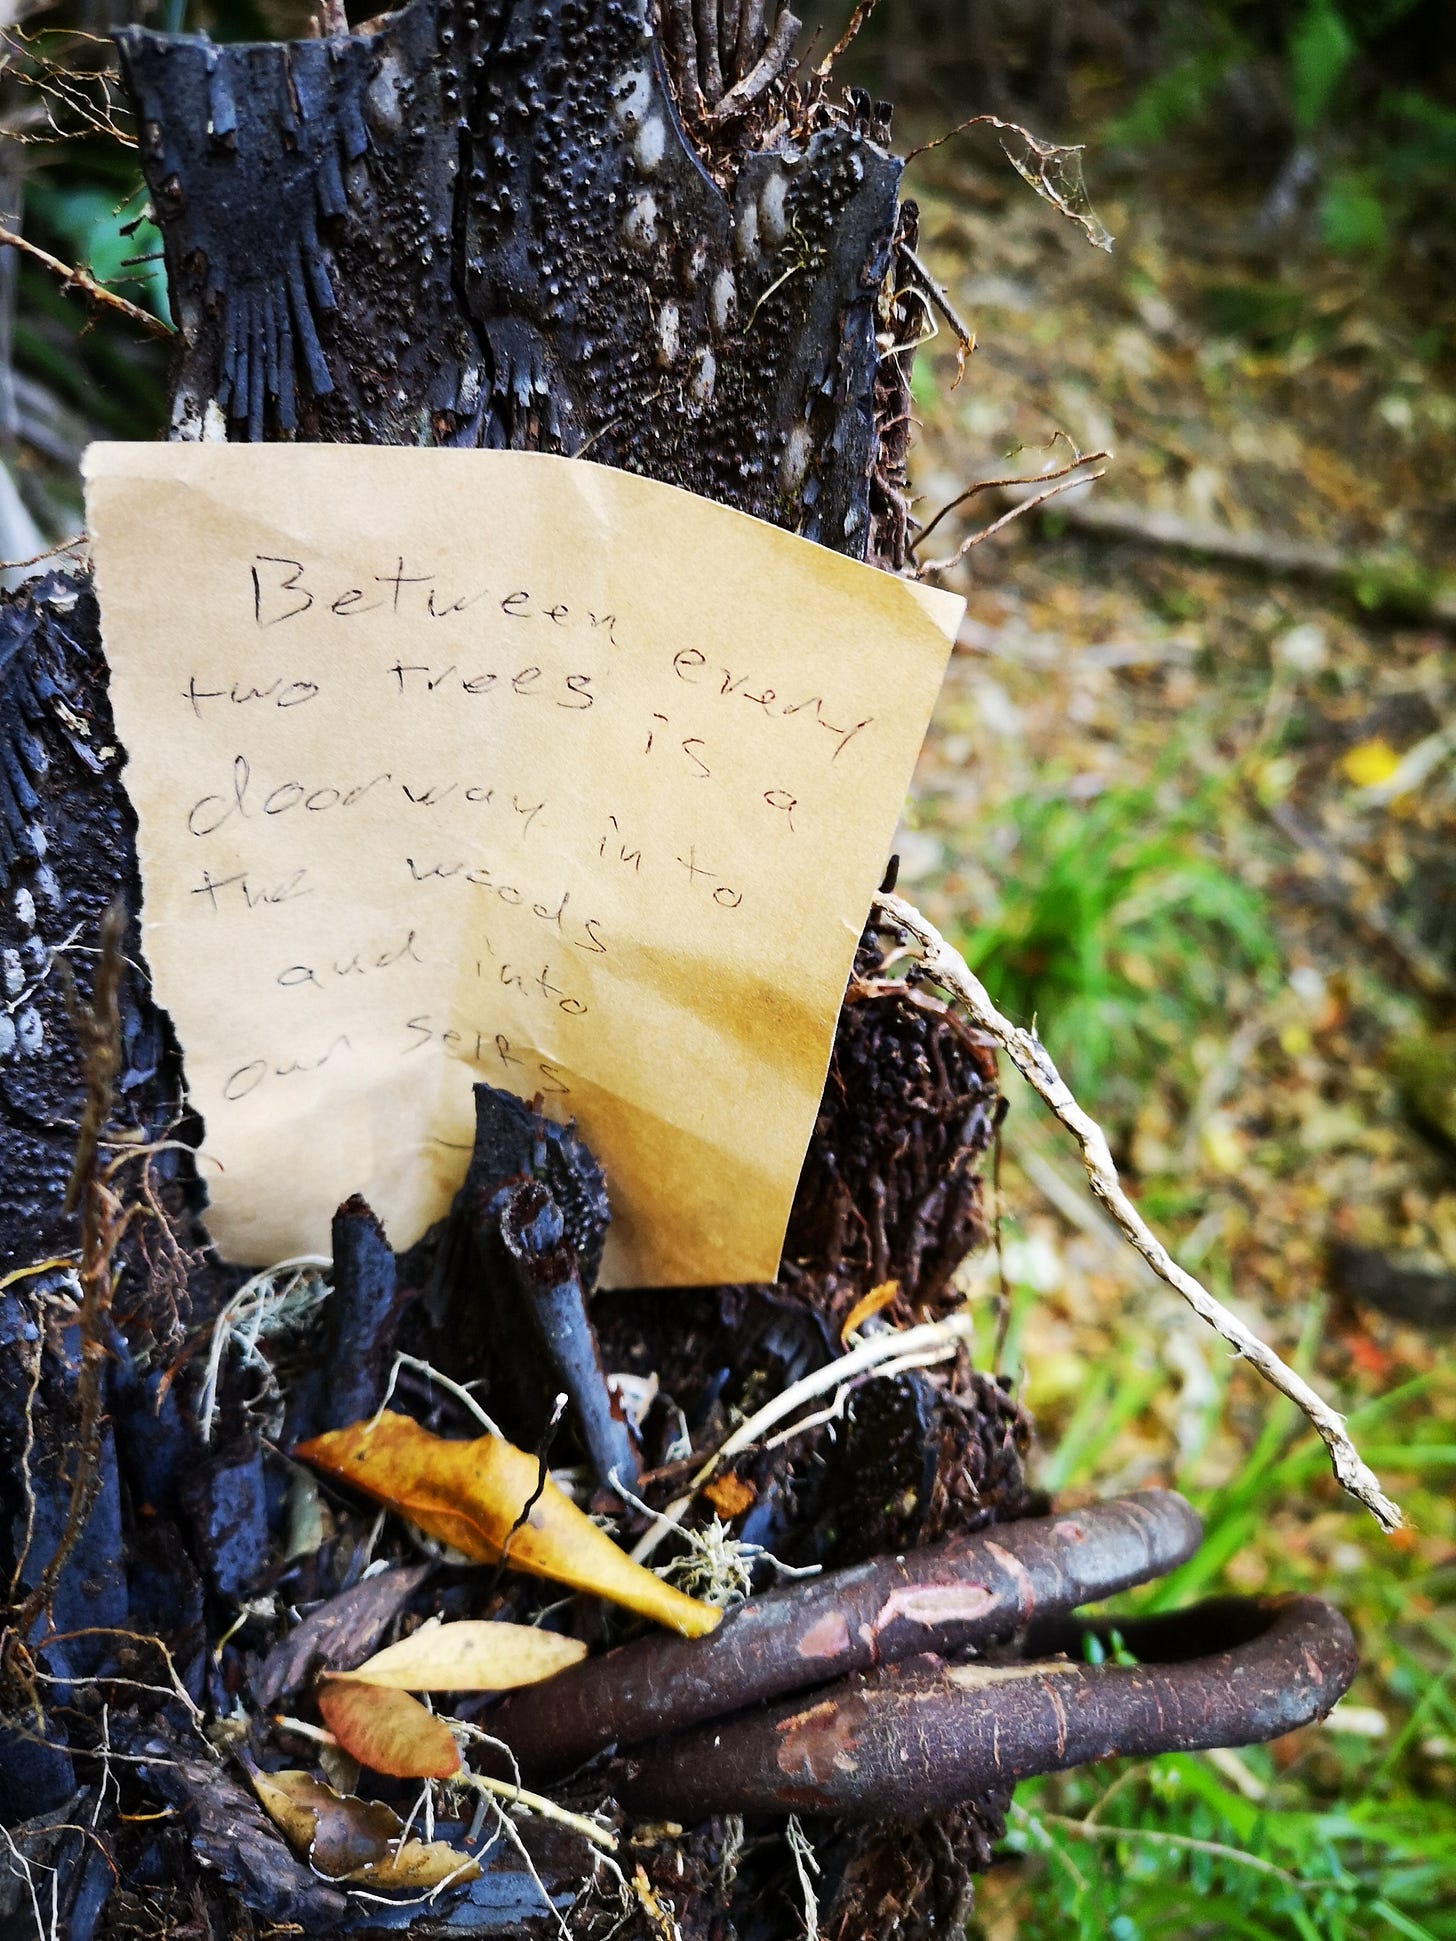 Between every
two trees is a
doorway into
the woods
and into
our selfs